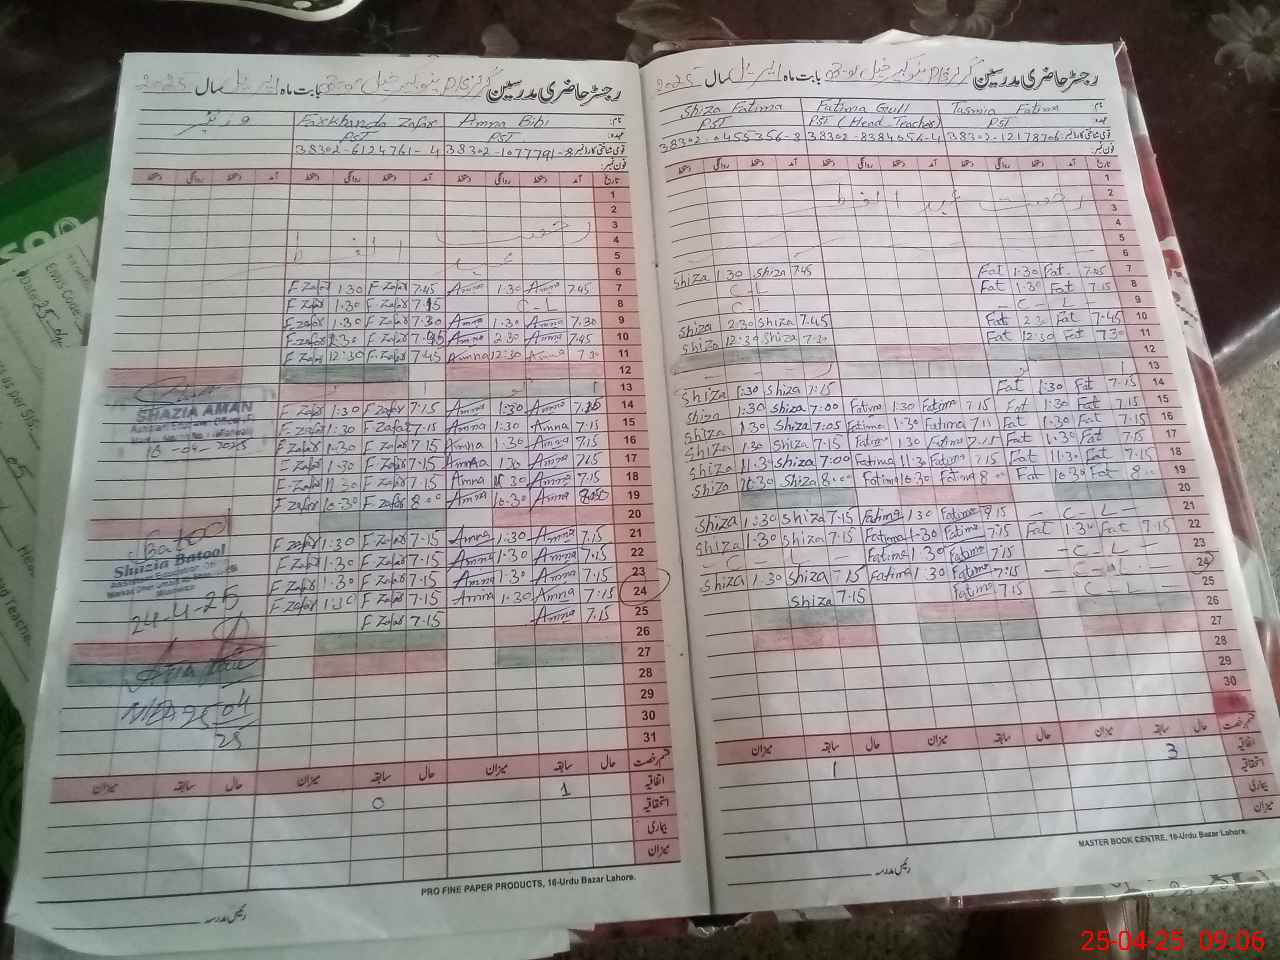 رجسٹر حاضری مدرسین
بابت ماہ اپریل سال 2025
وزیٹر
Farkhanda Zafar
Amna Bibi
نام
PST
PST
عہدہ
38302-6124761-4
38302-1077791-8
قومی شناختی کارڈ نمبر
فون نمبر
تاریخ آمد دستخط روانگی دستخط آمد دستخط روانگی دستخط
1
2
3
4
5
6
F Zafar 1:30 F Zafar 7:45 Amna 1:30 Amna 7:45 7
F Zafar 1:30 F Zafar 7:15 C-L 8
F Zafar 1:30 F Zafar 7:30 Amna 1:30 Amna 7:30 9
F Zafar 2:30 F Zafar 7:45 Amna 2:30 Amna 7:45 10
F Zafar 12:30 F Zafar 7:45 Amna 12:30 Amna 7:30 11
12
13
SHAZIA AMAN
16-04-2025
F Zafar 1:30 F Zafar 7:15 Amna 1:30 Amna 7:15 14
F Zafar 1:30 F Zafar 7:15 Amna 1:30 Amna 7:15 15
F Zafar 1:30 F Zafar 7:15 Amna 1:30 Amna 7:15 16
F Zafar 1:30 F Zafar 7:15 Amna 1:30 Amna 7:15 17
F Zafar 11:30 F Zafar 7:15 Amna 11:30 Amna 7:15 18
F Zafar 10:30 F Zafar 8:00 Amna 10:30 Amna 8:00 19
20
F Zafar 1:30 F Zafar 7:15 Amna 1:30 Amna 7:15 21
F Zafar 1:30 F Zafar 7:15 Amna 1:30 Amna 7:15 22
F Zafar 1:30 F Zafar 7:15 Amna 1:30 Amna 7:15 23
F Zafar 1:30 F Zafar 7:15 Amna 1:30 Amna 7:15 24
F Zafar 7:15 Amna 7:15 25
Shazia Batool
24-4-25
26
27
28
29
30
31
25/04
25
قسم رخصت حال سابقہ میزان حال سابقہ میزان حال سابقہ میزان
اتفاقیہ 1
استحقاقیہ 0
بیماری
میزان
PRO FINE PAPER PRODUCTS, 16-Urdu Bazar Lahore.
رئیس مدرسہ
رجسٹر حاضری مدرسین
بابت ماہ اپریل سال 2025
Shiza Fatima
Fatima Gull
Tasmia Fatima
نام
PST
PST (Head Teacher)
PST
عہدہ
38302-0455356-8
38302-8384056-4
38302-1217870-6
قومی شناختی کارڈ نمبر
فون نمبر
تاریخ آمد دستخط روانگی دستخط آمد دستخط روانگی دستخط
1
2
3
4
5
6
Shiza 1:30 Shiza 7:45 Fat 1:30 Fat 7:45 7
C-L Fat 1:30 Fat 7:15 8
C-L - C - L - 9
Shiza 2:30 Shiza 7:45 Fat 2:30 Fat 7:45 10
Shiza 12:30 Shiza 7:30 Fat 12:30 Fat 7:30 11
12
13
Shiza 1:30 Shiza 7:15 Fat 1:30 Fat 7:15 14
Shiza 1:30 Shiza 7:00 Fatima 1:30 Fatima 7:15 Fat 1:30 Fat 7:15 15
Shiza 1:30 Shiza 7:05 Fatima 1:30 Fatima 7:15 Fat 1:30 Fat 7:15 16
Shiza 1:30 Shiza 7:15 Fatima 1:30 Fatima 7:15 Fat 1:30 Fat 7:15 17
Shiza 11:30 Shiza 7:00 Fatima 11:30 Fatima 7:15 Fat 11:30 Fat 7:15 18
Shiza 10:30 Shiza 8:00 Fatima 10:30 Fatima 8:00 Fat 10:30 Fat 8:00 19
20
Shiza 1:30 Shiza 7:15 Fatima 1:30 Fatima 7:15 - C - L - 21
Shiza 1:30 Shiza 7:15 Fatima 1:30 Fatima 7:15 Fat 1:30 Fat 7:15 22
- C - L - Fatima 1:30 Fatima 7:15 - C - L - 23
Shiza 1:30 Shiza 7:15 Fatima 1:30 Fatima 7:15 - C - L - 24
Shiza 7:15 Fatima 7:15 - C - L - 25
26
27
28
29
30
قسم رخصت حال سابقہ میزان حال سابقہ میزان حال سابقہ میزان
اتفاقیہ 3 1
استحقاقیہ
بیماری
میزان
MASTER BOOK CENTRE, 16-Urdu Bazar Lahore.
رئیس مدرسہ
25-04-25 09:06